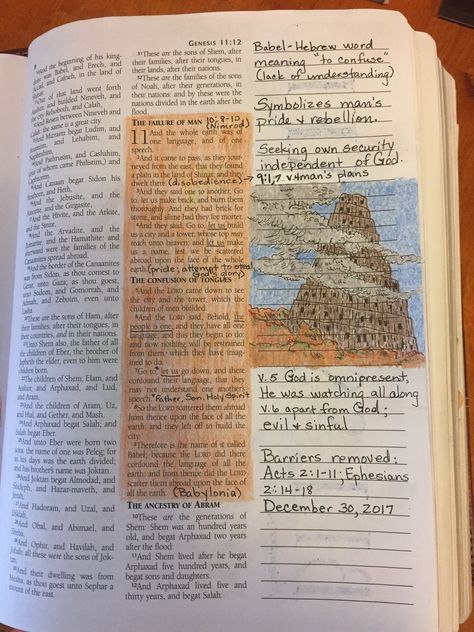 GENESIS 11:12
10And the beginning of his king-
dom was Babel, and Erech, and
Accad, and Calneh, in the land of
Out of that land went forth
Asshur, and builded Nineveh, and
the city Rehoboth, and Calah,
And Resen between Nineveh and
Calah: the same is a great city.
And Mizraim begat Ludim, and
Anamim, and Lehabim, and
And Pathrusim, and Casluhim,
(out of whom came Philistim,) and
And Canaan begat Sidon his
firstborn, and Heth,
And the Jebusite, and the
Amorite, and the Girgasite,
And the Hivite, and the Arkite,
and the Sinite,
And the Arvadite, and the
Zemarite, and the Hamathite: and
afterward were the families of the
Canaanites spread abroad.
And the border of the Canaanites
was from Sidon, as thou comest to
Gerar, unto Gaza; as thou goest,
unto Sodom, and Gomorrah, and
Admah, and Zeboim, even unto
Lasha.
These are the sons of Ham, after
their families, after their tongues, in
their countries, and in their nations.
Unto Shem also, the father of all
the children of Eber, the brother of
Japheth the elder, even to him were
children born.
The children of Shem; Elam, and
Asshur, and Arphaxad, and Lud,
and Aram.
And the children of Aram; Uz,
and Hul, and Gether, and Mash.
And Arphaxad begat Salah; and
Salah begat Eber.
And unto Eber were born two
sons: the name of one was Peleg; for
in his days was the earth divided;
and his brother's name was Joktan.
And Joktan begat Almodad, and
Sheleph, and Hazar-maveth, and
Jerah,
And Hadoram, and Uzal, and
Diklah,
And Obal, and Abimael, and
Sheba,
And Ophir, and Havilah, and
Jobab: all these were the sons of Jok-
tan.
And their dwelling was from
Mesha, as thou goest unto Sephar a
mount of the east.
31These are the sons of Shem, after
their families, after their tongues, in
their lands, after their nations.
32These are the families of the
sons of Noah, after their generations,
in their nations: and by these were the
nations divided in the earth after the
flood.
THE FAILURE OF MAN 10:8-10
(Nimrod)
11 And the whole earth was of
one language, and of one
speech.
2And it came to pass, as they jour-
neyed from the east, that they found
a plain in the land of Shinar; and they
dwelt there. (disobedience)
3And they said one to another, Go
to, let us make brick, and burn them
thoroughly. And they had brick for
stone, and slime had they for morter.
4And they said, Go to, let us build
us a city and a tower, whose top may
reach unto heaven; and let us make
us a name, lest we be scattered
abroad upon the face of the whole
earth. (pride; attempt to steal
God's glory)
THE CONFUSION OF TONGUES
5And the LORD came down to see
the city and the tower, which the
children of men builded.
6And the LORD said, Behold, the
people is one, and they have all one
language; and this they begin to do:
and now nothing will be restrained
from them, which they have imag-
ined to do.
7Go to, let us go down, and there
confound their language, that they
may not understand one another's
speech. *Father, Son, Holy Spirit
8So the LORD scattered them abroad
from thence upon the face of all the
earth: and they left off to build the
city.
9Therefore is the name of it called
Babel; because the LORD did there
confound the language of all the
earth: and from thence did the LORD
scatter them abroad upon the face of
all the earth. (Babylonia)
THE ANCESTRY OF ABRAM
10These are the generations of
Shem: Shem was an hundred years
old, and begat Arphaxad two years
after the flood:
11And Shem lived after he begat
Arphaxad five hundred years, and
begat sons and daughters.
12And Arphaxad lived five and
thirty years, and begat Salah:
Babel - Hebrew word
meaning "to confuse"
(lack of understanding)
Symbolizes man's
pride & rebellion.
Seeking own security
independent of God.
9:1,7 v.4 man's plans
v.5 God is omnipresent,
He was watching all along
v.6 apart from God;
evil & sinful
Barriers removed:
Acts 2:1-11; Ephesians
2:14-18
December 30, 2017